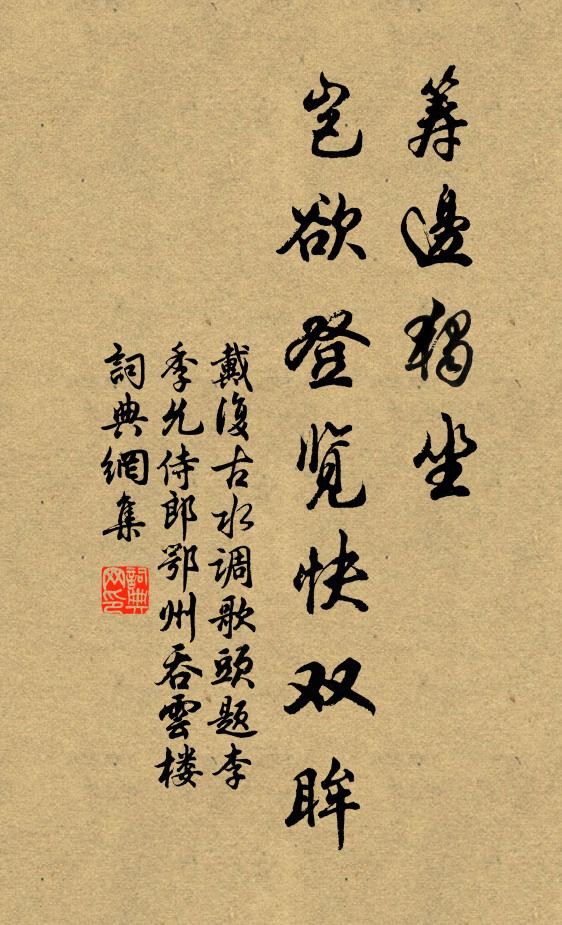 筹邊獨坐
岂欲登览快双眸
戴復古水调歌頭题李
季允侍郎鄂州吞雲楼
詞典網集
詞典网印